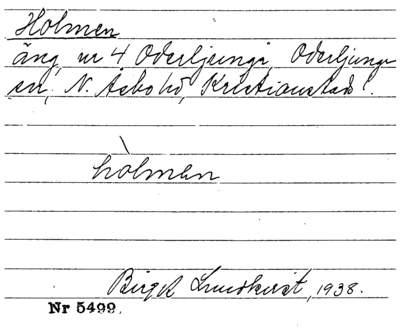 Holmen
äng, nr 4 Oderljunga, Oderljunga
sn, N. Åsbo hd, Kristianstad l.
hòlmən
Birgit Lundkvist, 1938.
Nr 5499.